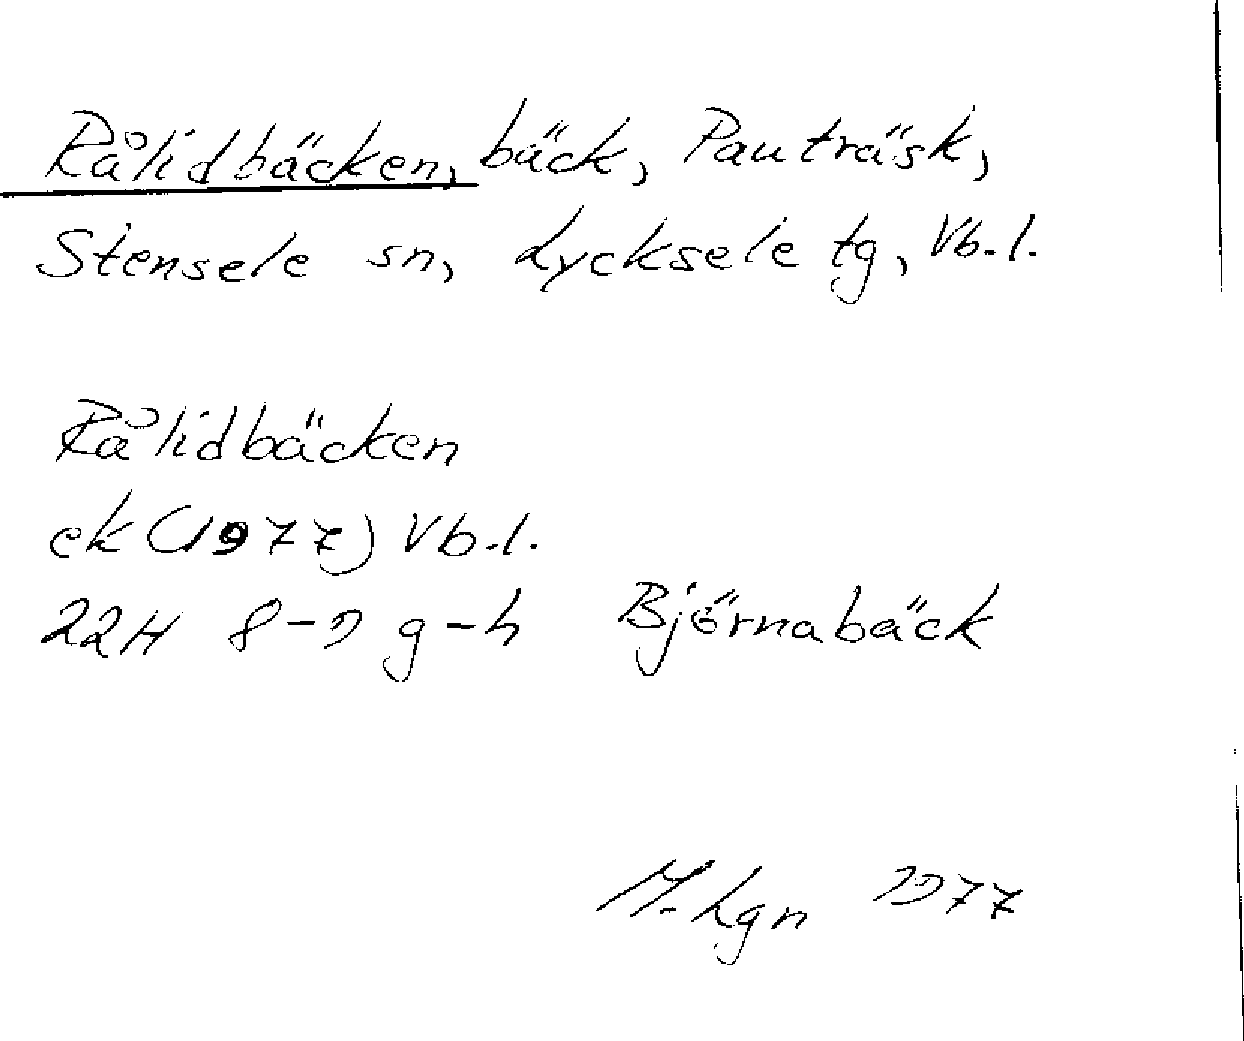 Rålidbäcken, bäck, Pauträsk,
Stensele sn, Lycksele tg, Vb.l.
Rålidbäcken
ek (1977) Vb.l.
22H 8-9 g-h Björnabäck
M. Lgn 1977